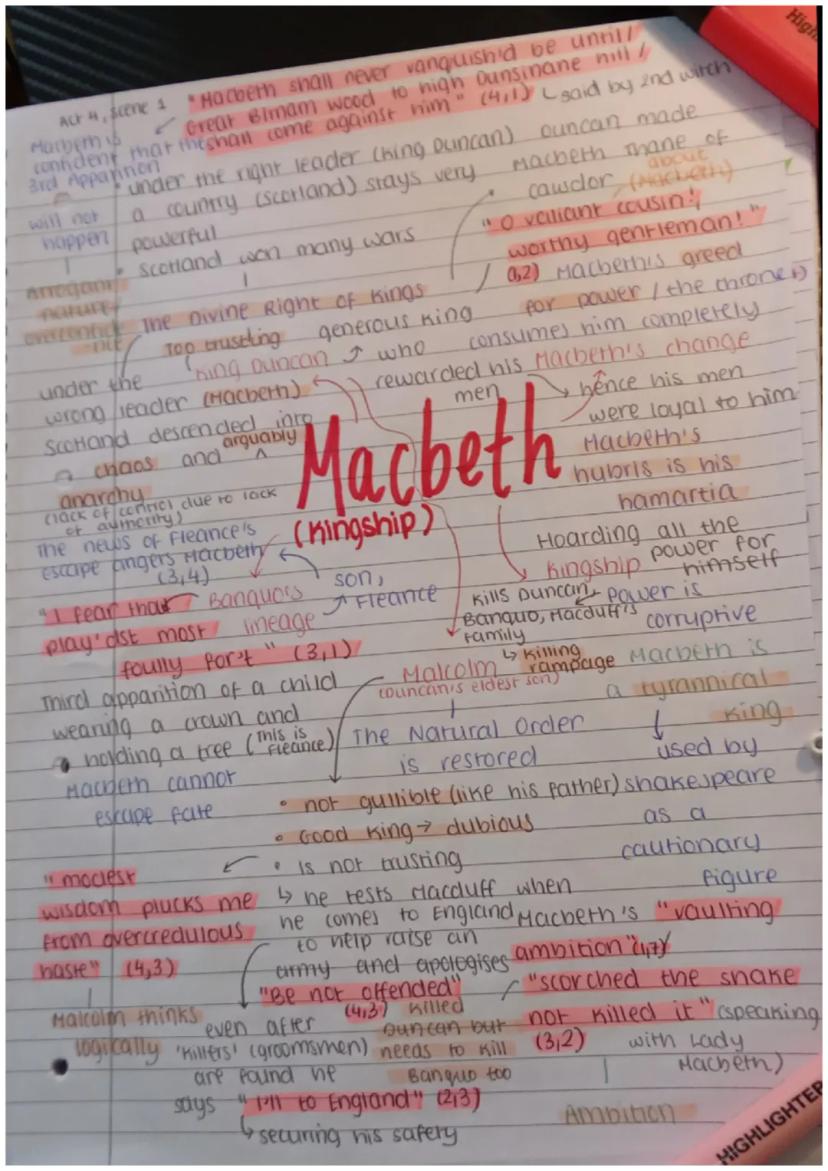 Act 4, Scene 1 "Macbeth shall never vanquish'd be until/
Great Birnam wood to high Dunsinane hill/
shall come against him" (4,1) said by 2nd witch
Macbeth is
confident that the
3rd Apparition
will not
happen
Arrogant
nature/
overconfide
nce
• under the right leader (King Duncan)
a country (Scotland) stays very
powerful
• Scotland won many wars
The Divine Right of Kings
Duncan made
Macbeth thane of
cawdor
about
(Macbeth)
"O valiant cousin!
worthy gentleman!"
(1,2)
Macbeth's greed
for power / the throne
consumes him completely
Macbeth's change
Too trusting
King Duncan
generous king
who
rewarded his
men
hence his men
were loyal to him
under the
wrong leader (Macbeth)
Scotland descended into
chaos and arguably
anarchy
(lack of control due to lack
of authority)
Macbeth
(Kingship)
Macbeth's
hubris is his
hamartia
Hoarding all the
power for
himself
Kingship
Power is
corruptive
Kills Duncan,
Banquo, Macduff's
family
Killing
rampage
Macbeth is
a tyrannical
king
used by
shakespeare
as a
cautionary
figure
The news of Fleance's
escape angers Macbeth
(3,4)
Banquo's
lineage
son,
Fleance
"I fear thou
play'dst most
foully for't" (3,1)
Third apparition of a child
wearing a crown and
holding a tree (This is
Fleance)
Macbeth cannot
escape fate
Malcolm
(Duncan's eldest son)
The Natural Order
is restored
• not gullible (like his father)
• Good King → dubious
• Is not trusting
↳ he tests Macduff when
he comes to England
to help raise an
army and apologises
"Be not offended"
(4,3)
"modest
wisdom plucks me
from overcredulous
haste" (4,3)
Malcolm thinks
logically
even after
'killers' (groomsmen)
are found he
says "I'll to England" (2,3)
↳ securing his safety
Macbeth's "vaulting
ambition" (1,7)
"scorched the snake
not killed it" (speaking
(3,2) with Lady
Macbeth)
killed
Duncan but
needs to kill
Banquo too
Ambition
High
HIGHLIGHTER